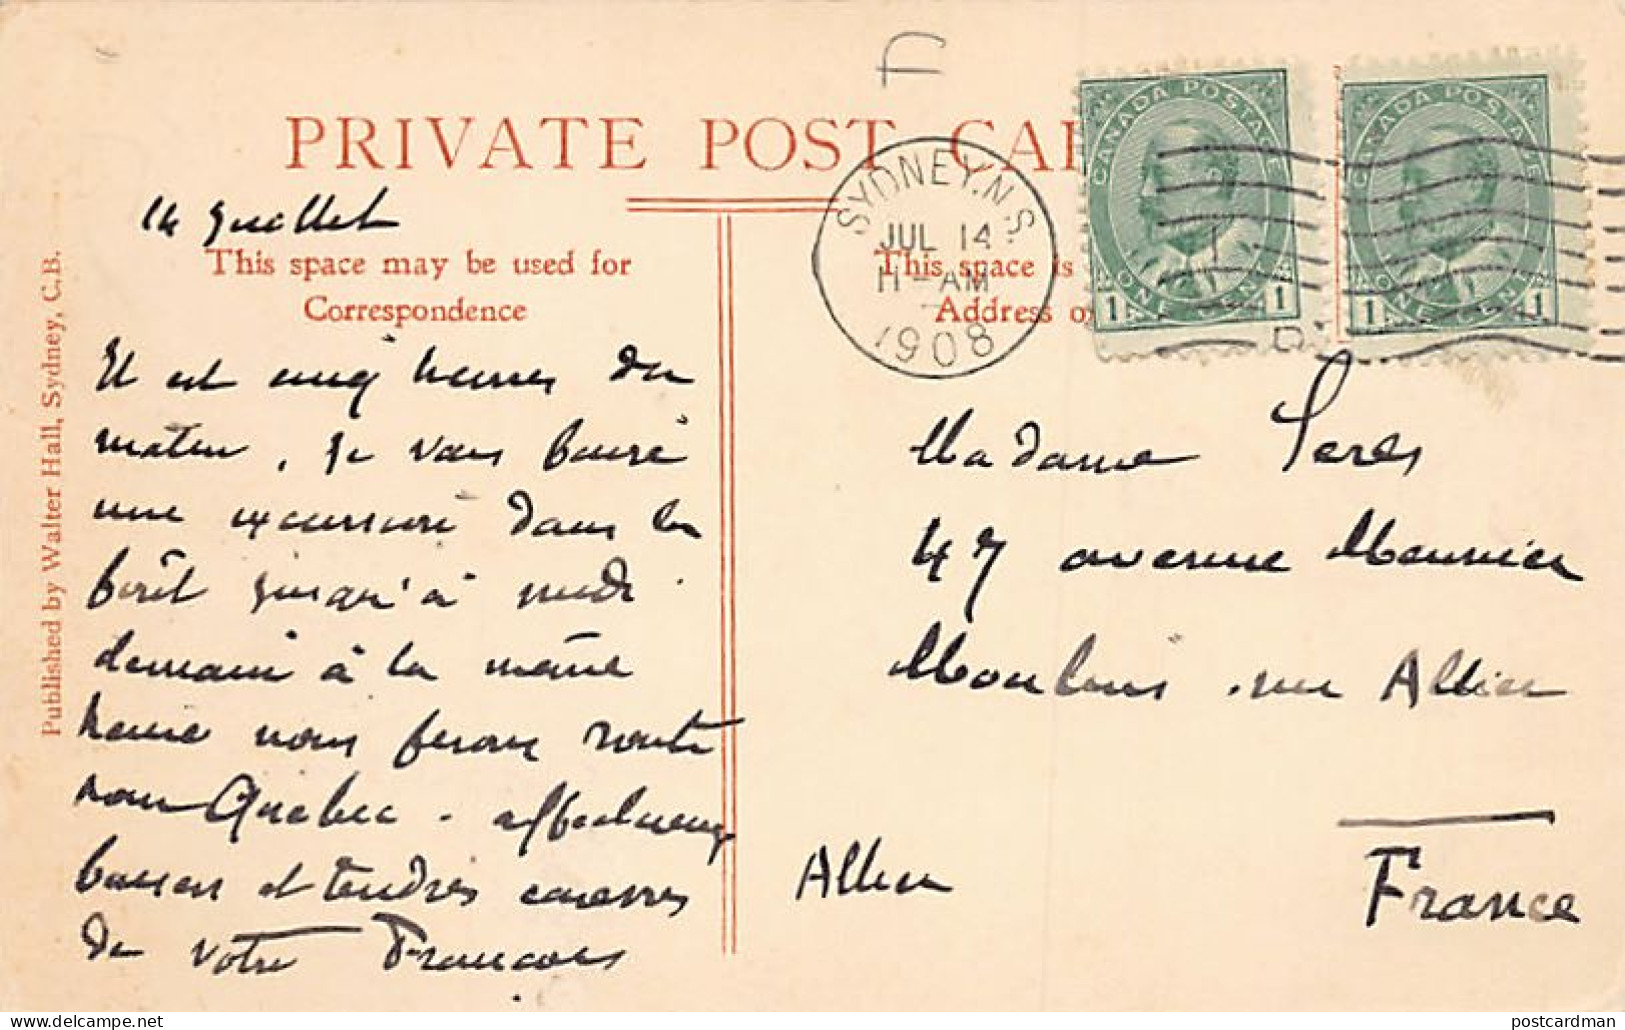 PRIVATE POST CAR
14 Juillet
This space may be used for
Correspondence
This space is
Address o
Published by Walter Hall, Sydney, C.B.
SYDNEY, N.S.
JUL 14
11-AM
1908
CANADA POSTAGE
1 ONE CENT 1
CANADA POSTAGE
1 ONE CENT 1
Il est cinq heures du
matin, je vais faire
une excursion dans la
forêt jusqu'à midi.
demain à la même
heure nous ferons route
pour Québec. affectueux
baisers et tendres caresses
de votre François
Madame
47 avenue Meunier
Moulins sur Allier
Allier
France
postcardman